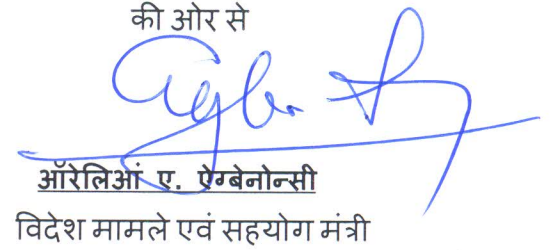 की ओर से
ऑरेलिओ ए. ऐग्बेनोन्सी
विदेश मामले एवं सहयोग मंत्री